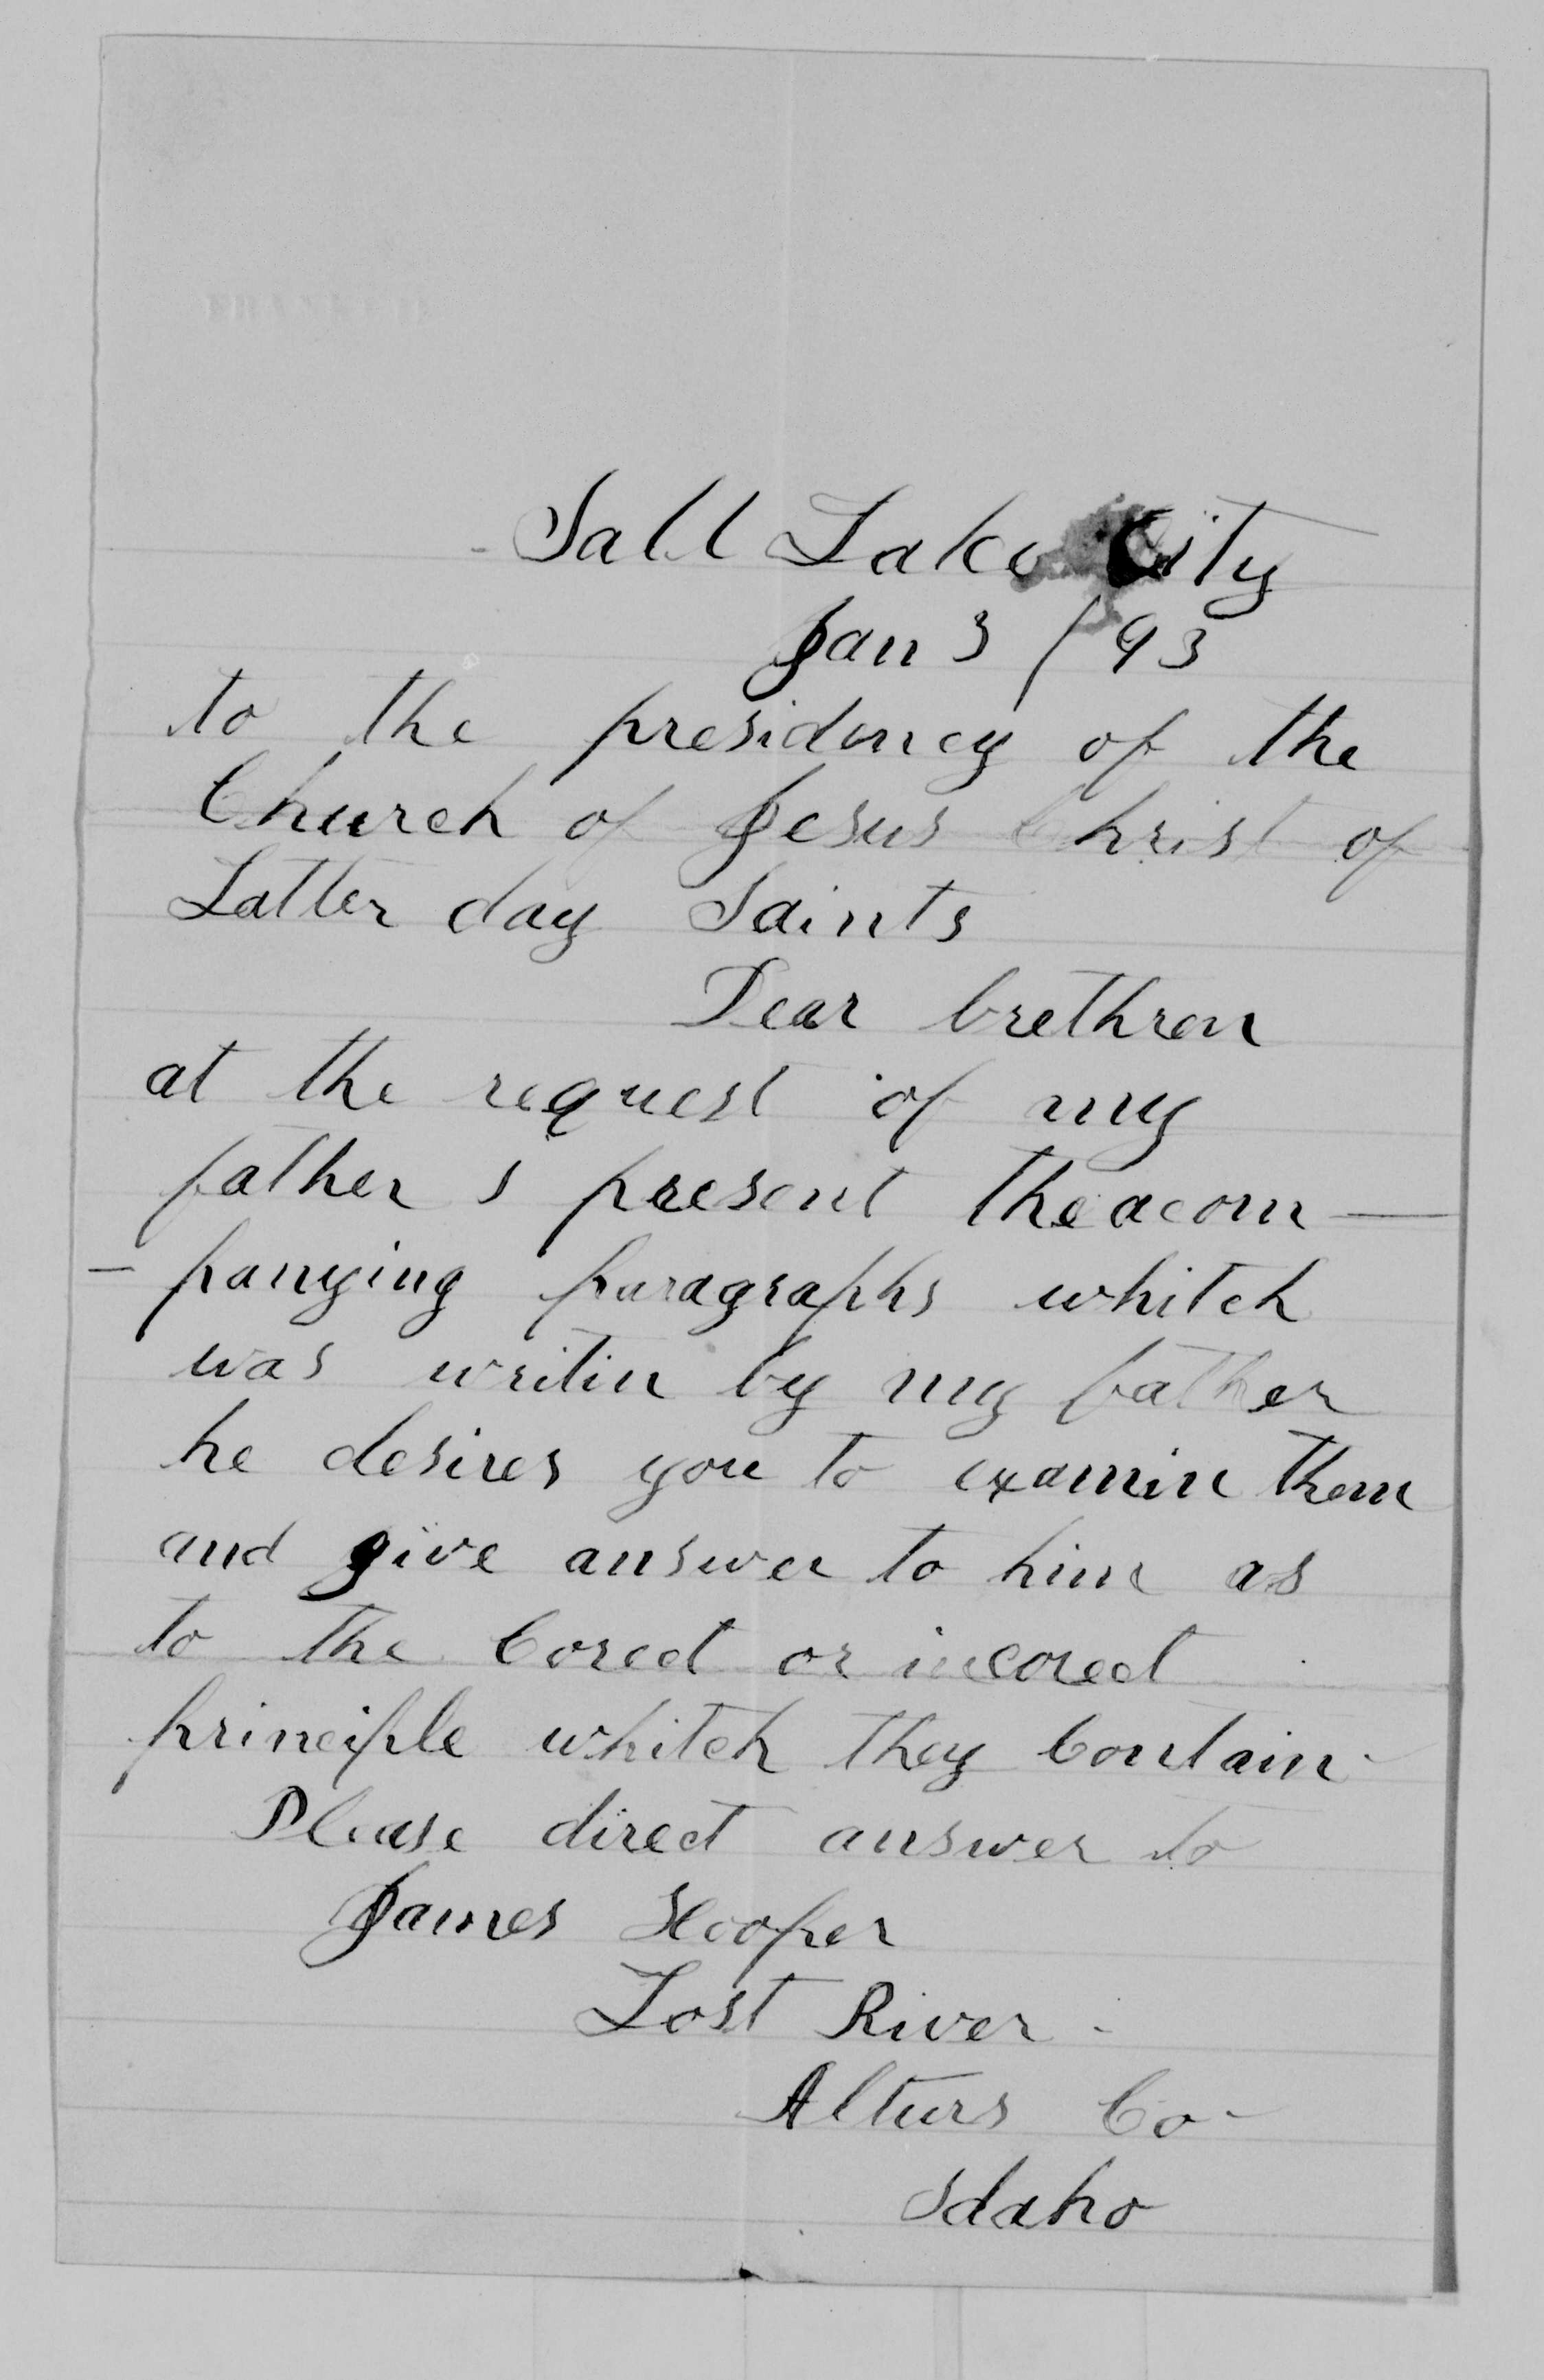 Salt Lake City
Jan 3 / 93
to the presidency of the
Church of Jesus Christ of
Latter day Saints
Dear brethren
at the request of my
father I present the acom—
—panying paragraphs whitch
was writin by my father
he desires you to examin them
and give answer to him as
to the Corect or incorect
principle whitch they Contain-
Please direct answer to
James Hooper
Lost River -
Alturs Co-
Idaho